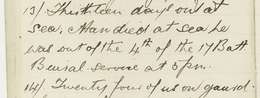 13/ Thirteen days out at
sea. Man died at sea he
was out of the 4th of the 17 Batt
Burial service at 5 pm.
14/ Twenty four of us on guard.